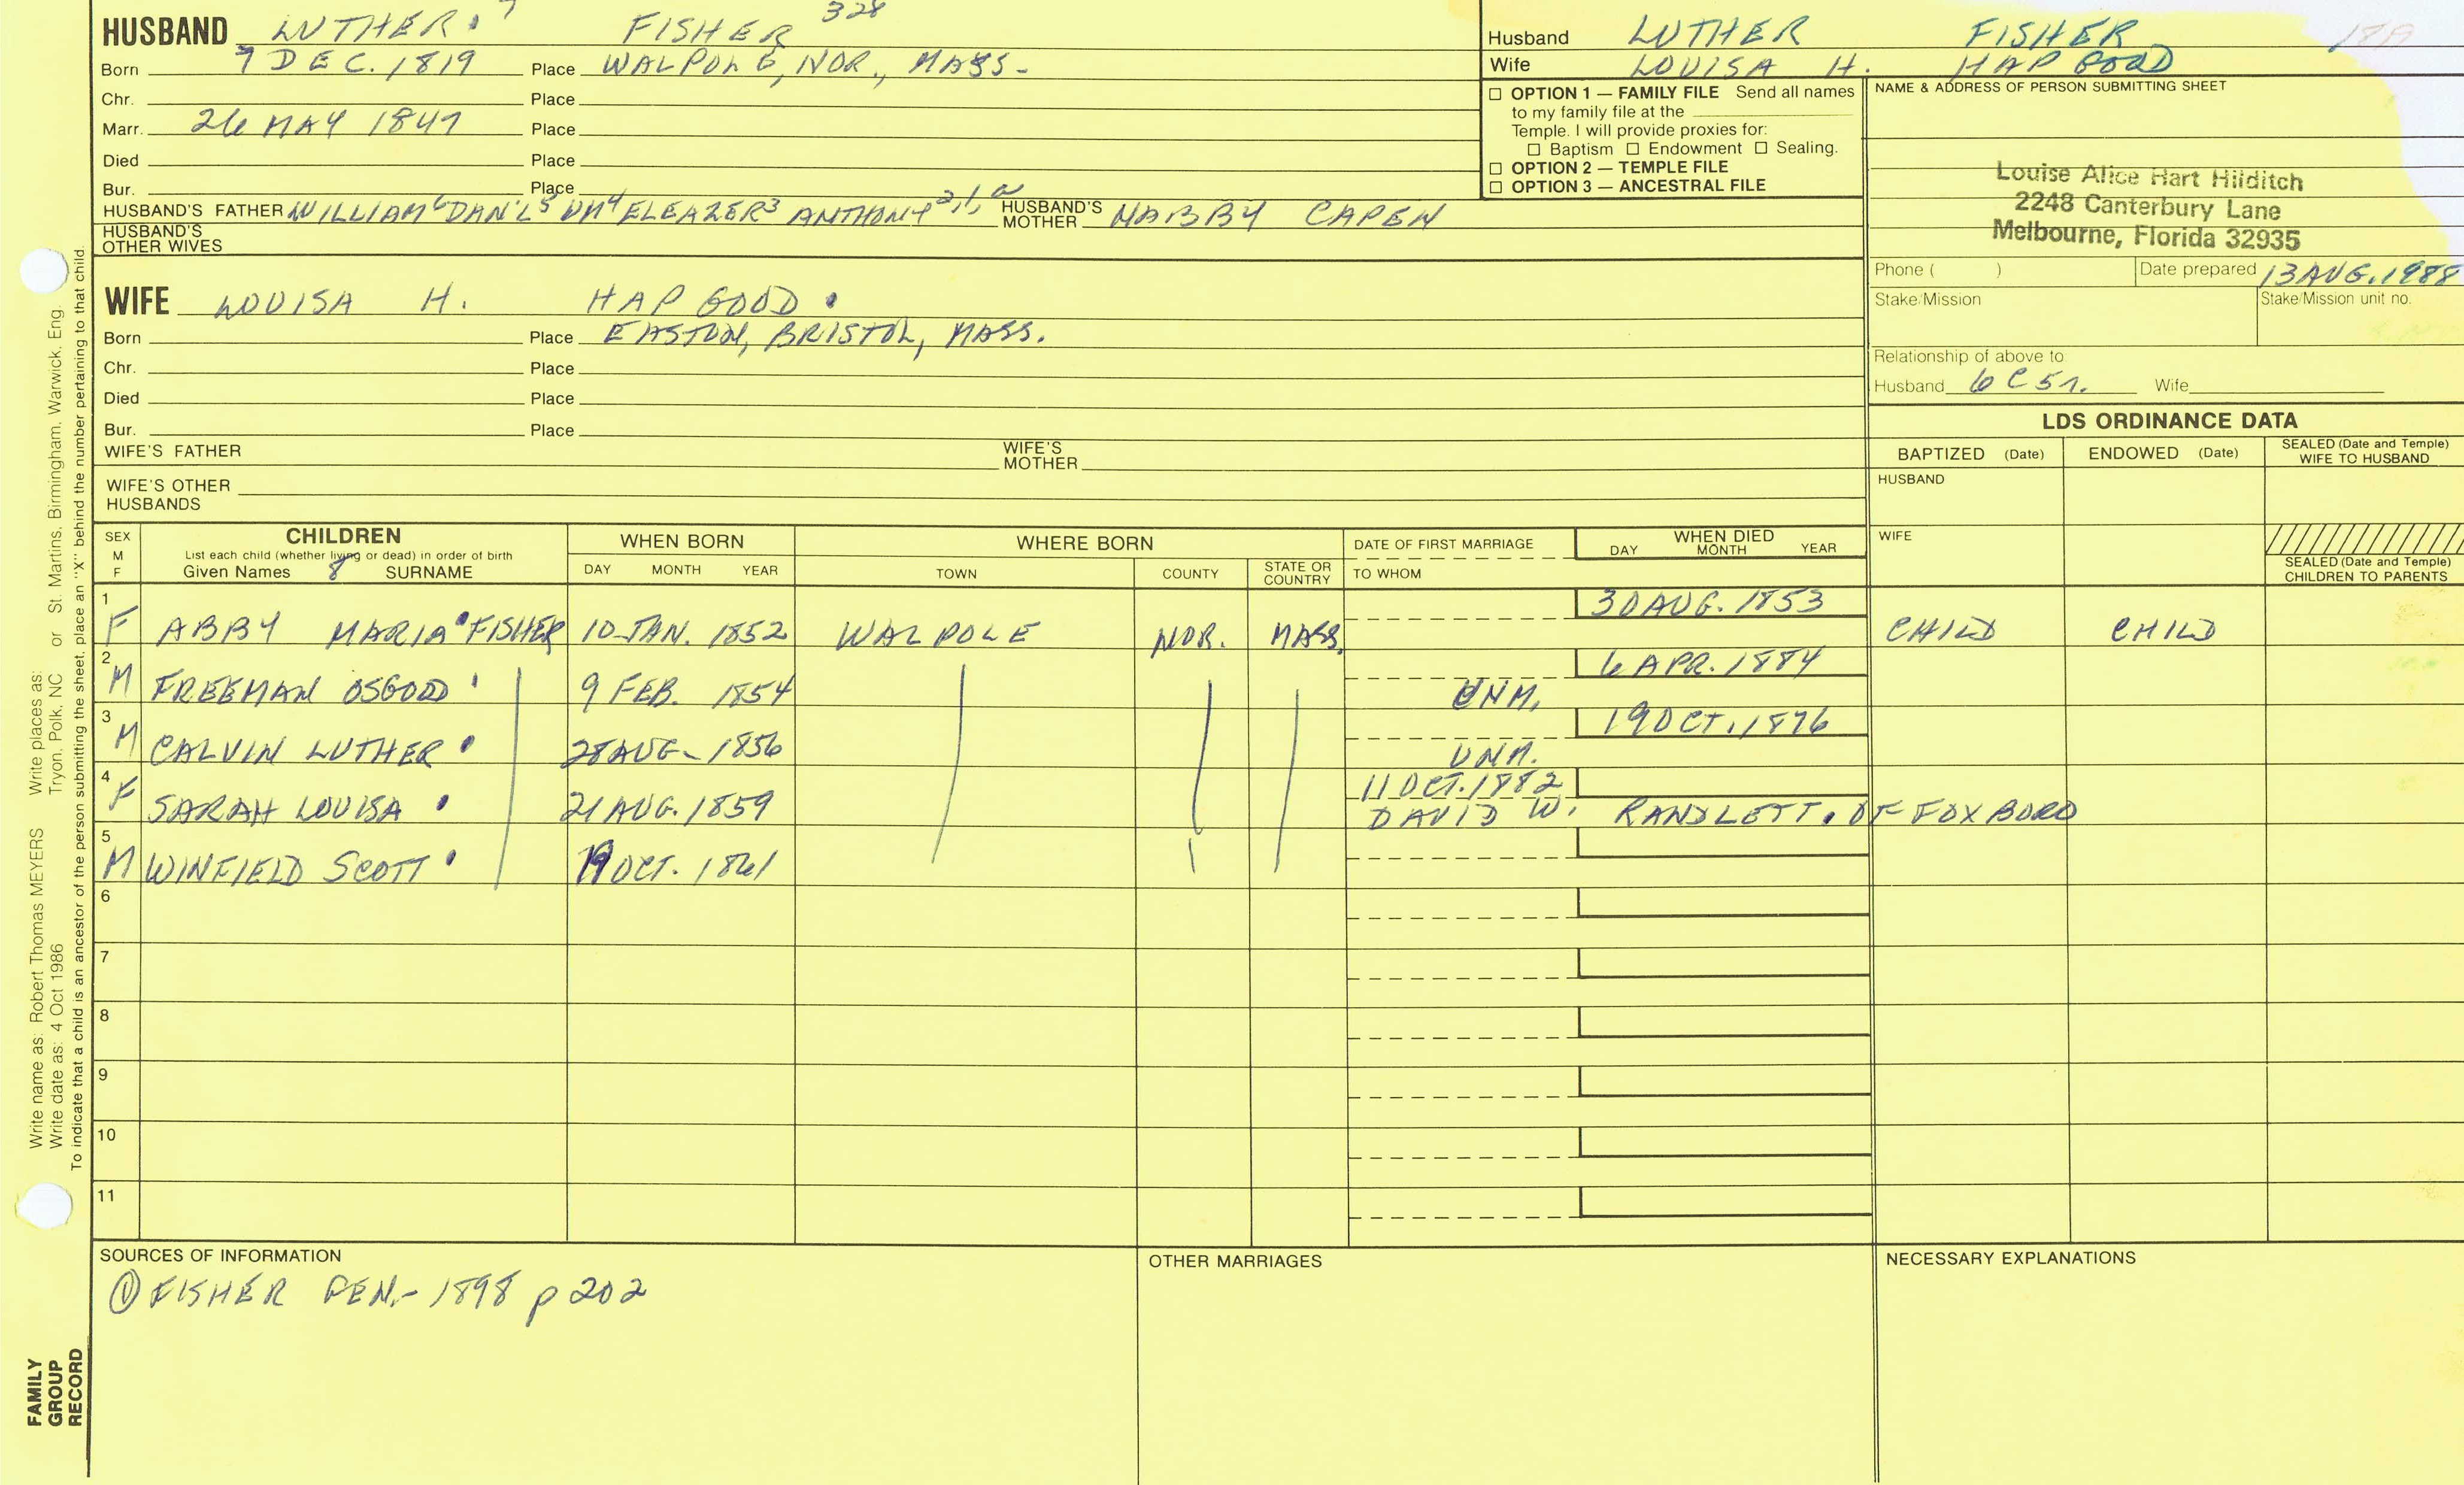 HUSBAND LUTHER. 7 FISHER 328
Born 7 DEC. 1819 Place WALPOLE, NOR., MASS.
Chr. Place
Marr. 26 MAY 1847 Place
Died Place
Bur. Place
HUSBAND'S FATHER WILLIAM 6 DAN'L 5 WM 4 ELEAZER 3 ANTHONY 2,1, a HUSBAND'S MOTHER NABBY CAPEN
HUSBAND'S OTHER WIVES
WIFE LOUISA H. HAPGOOD.
Born Place EASTON, BRISTOL, MASS.
Chr. Place
Died Place
Bur. Place
WIFE'S FATHER WIFE'S MOTHER
WIFE'S OTHER HUSBANDS
Husband LUTHER FISHER
Wife LOUISA H. HAPGOOD
☐ OPTION 1 — FAMILY FILE Send all names
to my family file at the
Temple. I will provide proxies for:
☐ Baptism ☐ Endowment ☐ Sealing.
☐ OPTION 2 — TEMPLE FILE
☐ OPTION 3 — ANCESTRAL FILE
NAME & ADDRESS OF PERSON SUBMITTING SHEET
Louise Alice Hart Hilditch
2248 Canterbury Lane
Melbourne, Florida 32935
Phone ( ) Date prepared 13 AUG. 1988
Stake/Mission Stake/Mission unit no.
Relationship of above to
Husband 6C5r. Wife
LDS ORDINANCE DATA
BAPTIZED (Date) ENDOWED (Date) SEALED (Date and Temple) WIFE TO HUSBAND
HUSBAND
WIFE
SEALED (Date and Temple) CHILDREN TO PARENTS
SEX M F
CHILDREN
List each child (whether living or dead) in order of birth
Given Names 8 SURNAME
WHEN BORN
DAY MONTH YEAR
WHERE BORN
TOWN COUNTY STATE OR COUNTRY
DATE OF FIRST MARRIAGE
TO WHOM
WHEN DIED
DAY MONTH YEAR
1 F ABBY MARIA FISHER 10 JAN. 1852 WALPOLE NOR. MASS. 30 AUG. 1853 CHILD CHILD
2 M FREEMAN OSGOOD 9 FEB. 1854 UNM. 6 APR. 1884
3 M CALVIN LUTHER 28 AUG- 1856 UNM. 19 OCT. 1876
4 F SARAH LOUISA 21 AUG. 1859 11 OCT. 1882
DAVID W. RANDLETT. OF FOXBORO
5 M WINFIELD SCOTT 19 OCT. 1861
6
7
8
9
10
11
SOURCES OF INFORMATION
① FISHER GEN.- 1898 p 202
OTHER MARRIAGES
NECESSARY EXPLANATIONS
Write name as: Robert Thomas MEYERS Write places as:
Write date as: 4 Oct 1986 Tryon, Polk, NC or St. Martins, Birmingham, Warwick, Eng.
To indicate that a child is an ancestor of the person submitting the sheet, place an "X" behind the number pertaining to that child.
FAMILY
GROUP
RECORD